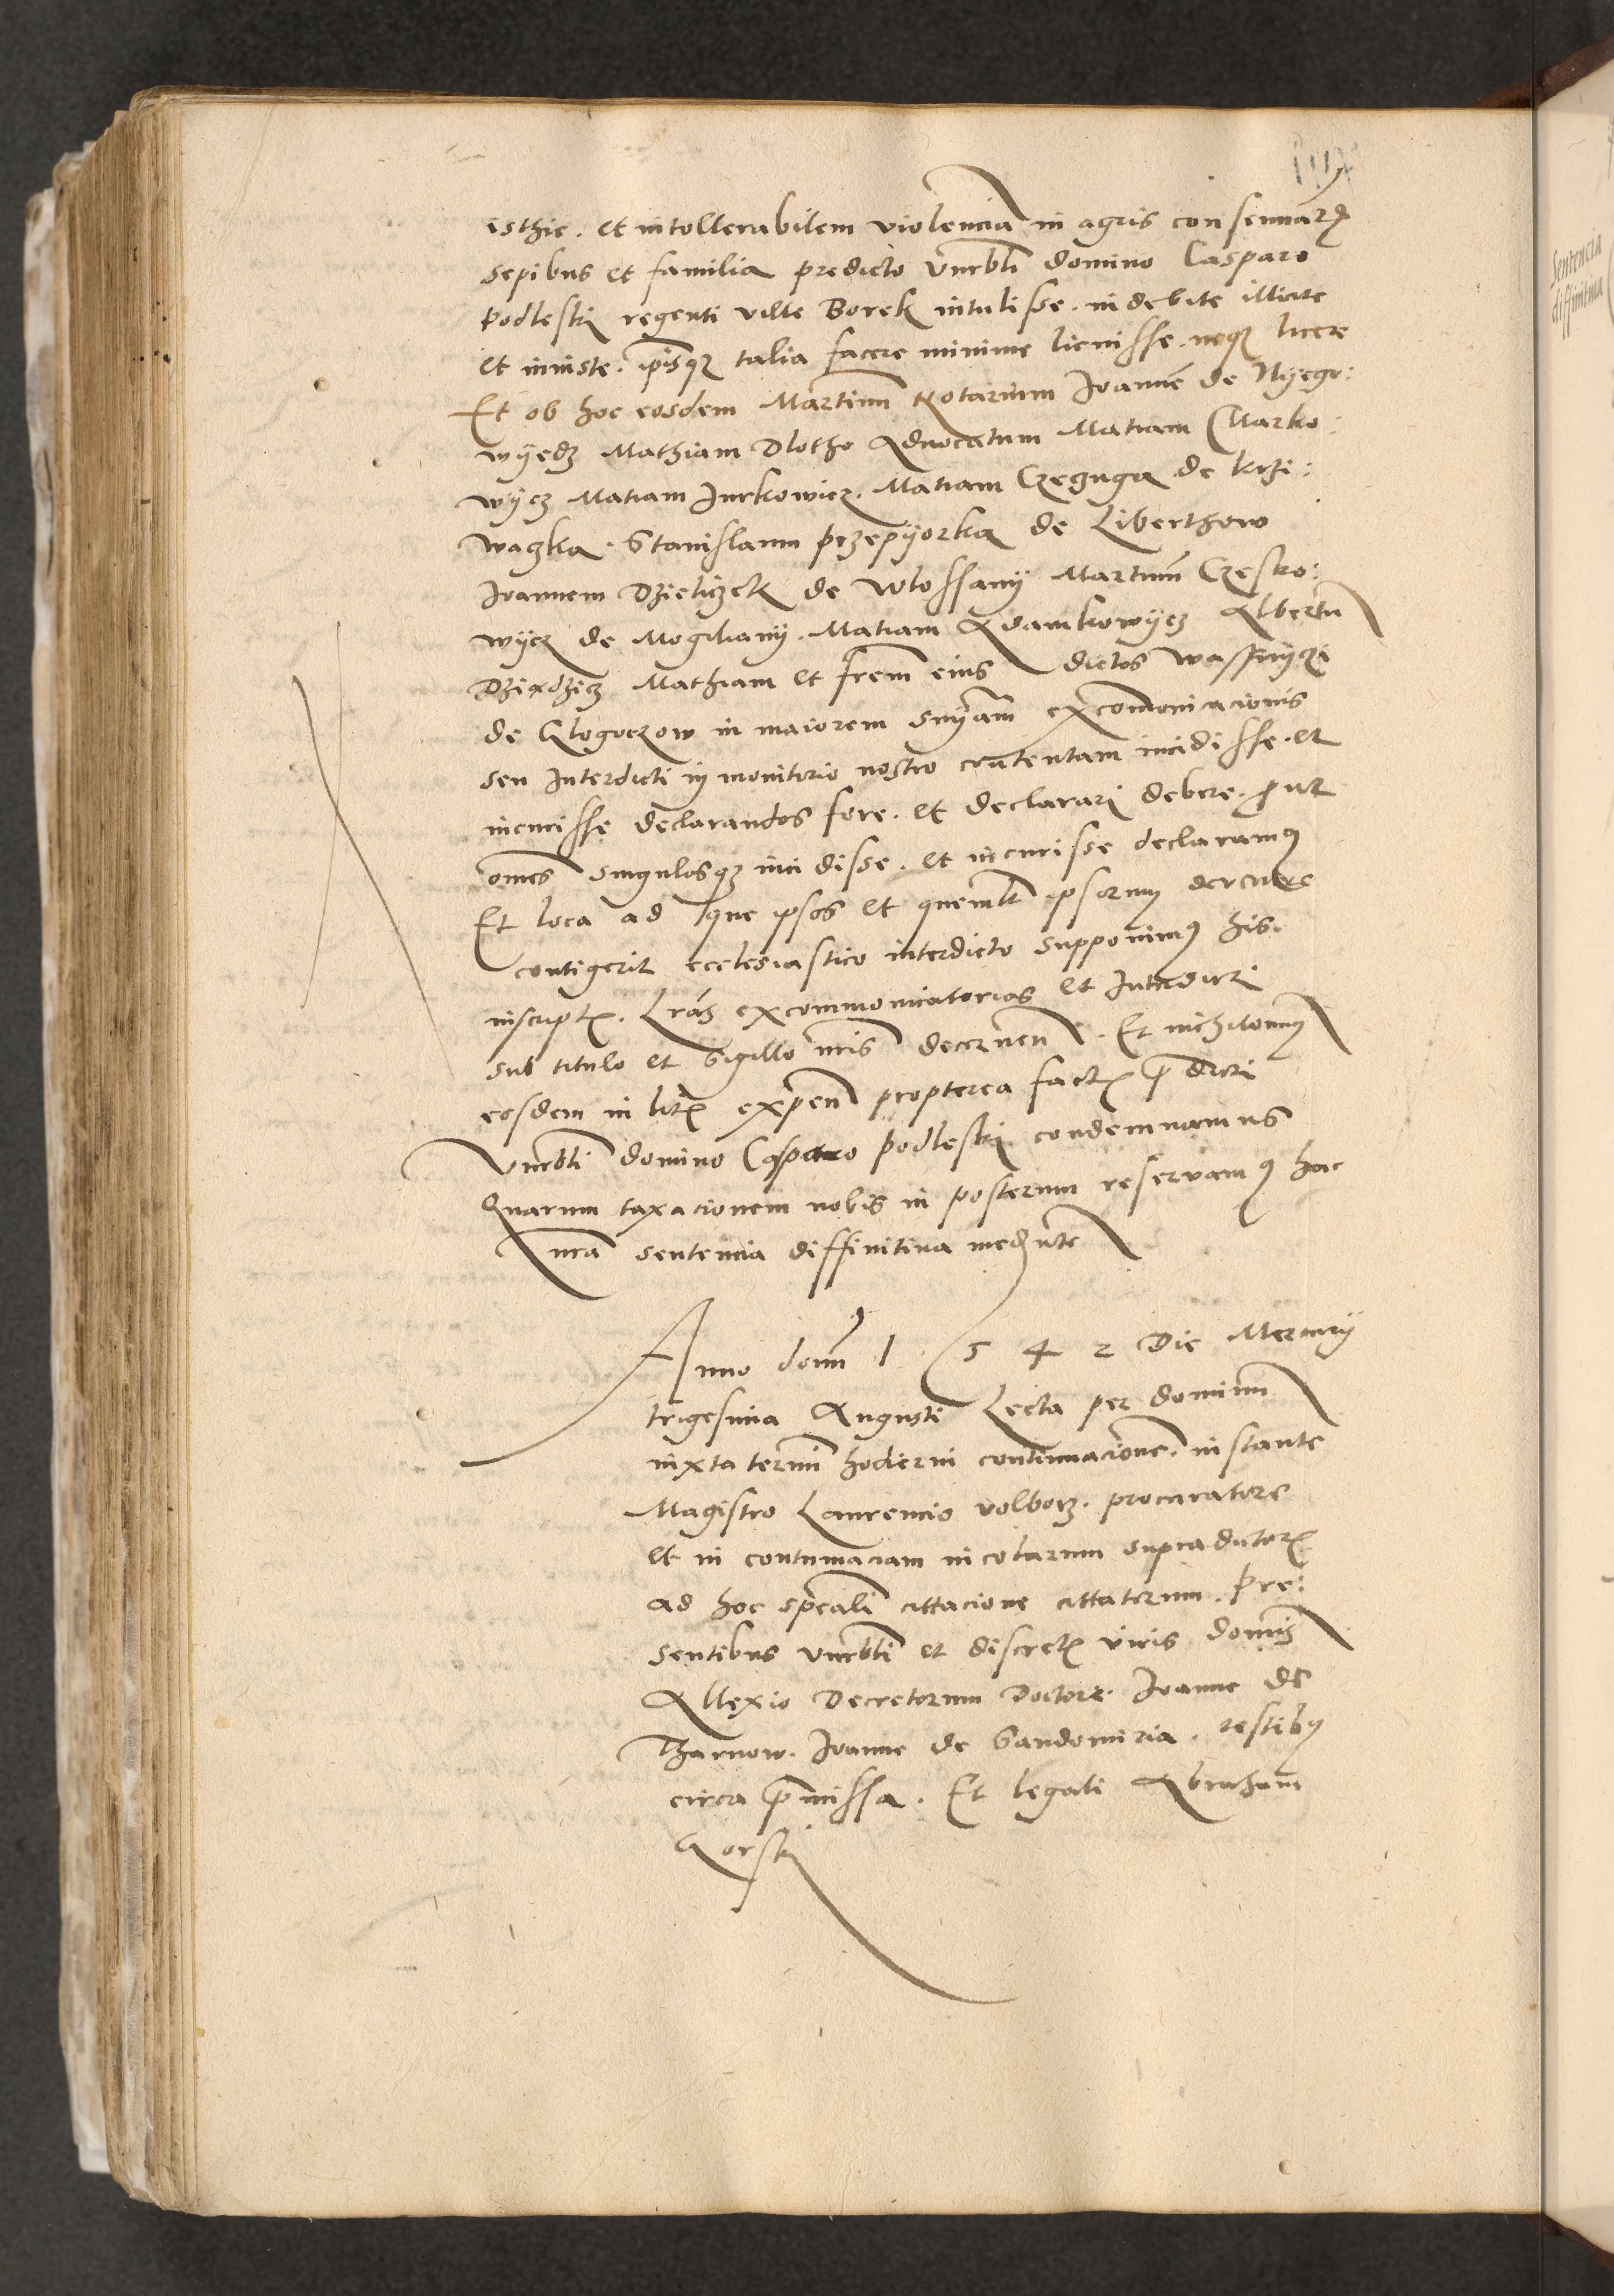 isthic. et intollerabilem violenciã in agris con seminatꝫ
sepibus et familia predicto Vnrbli domino Casparo
Podleski regenti ville Borek intulisse. indebite illicite
et iniuste. ipisqꝫ talia facere minime licuisse. neqꝫ licere
Et ob hoc eosdem Martinũ Notarium Joannẽ de Nyego:
wyedz Mathiam Dlotho Aduocatum Matiam Marko:
wycz Matiam Jurkowicz. Matiam Czezuga de Krzi:
waczka. Stanislaum przepyorka de Liberthow
Joannem Dzieliczek de Wlossany Martinũ Czesko:
wycz de Mogilany. Matiam Adamkowycz Albertũ
Mathiam et frem eius dictos
de Glogoczow in maiorem snyam excomonicacionis
seu Interdicti in monitorio nostro contentam incidisse. et
incurrisse declarandos fore. et declarari debere. prout
omes singulosqꝫ incidisse. et incurisse declaramꝰ
Et loca ad que ipsos et quemlt ipsorum
contigerit ecclesiastico interdicto supponimꝰ his.
inscriptꝭ. Lras excommonicatorias et Interdicti
sub titulo et Sigillo nris decernen. Et nichilomiꝰ
eosdem in litꝭ expen propterea factꝭ p dicti
Vnrbli domino Casparo podleski condemnamus
Quarum taxacionem nobis in posterum reservamꝰ hac
nra sentencia diffinitiua medȷnte
Anno domi 1 5 4 2 Die Mercurij
trigesima Augusti Lecta per dominũ
iuxta termi hodierni continuacionẽ. instante
Magistro Laurencio volborz. procuratore
et in contumaciam incolarum supradictorꝭ
ad hoc speciali cittacione cittatorum. Pre:
sentibus vnrbli et discretꝭ viris domis
Allexio Decretorum Doctore. Joanne de
Tharnow. Joanne de Sandomiria. testibꝰ
circa p̃missa. Et legali Abraham
Gorski
Sentencia
diffinitiua